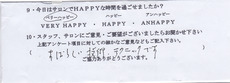 9・今日はサロンでHAPPYな時間を過ごせましたか？
ベリーハッピー ハッピー アンハッピー
VERY HAPPY ・ HAPPY ・ ANHAPPY
10・スタッフ、サロンにご意見・ご要望がございましたらお聞かせ下さい
上記アンケート項目に対しての細かなご意見などもご記入下さい。
すばらしい 技術 テクニック です
ご協力ありがとうございます。